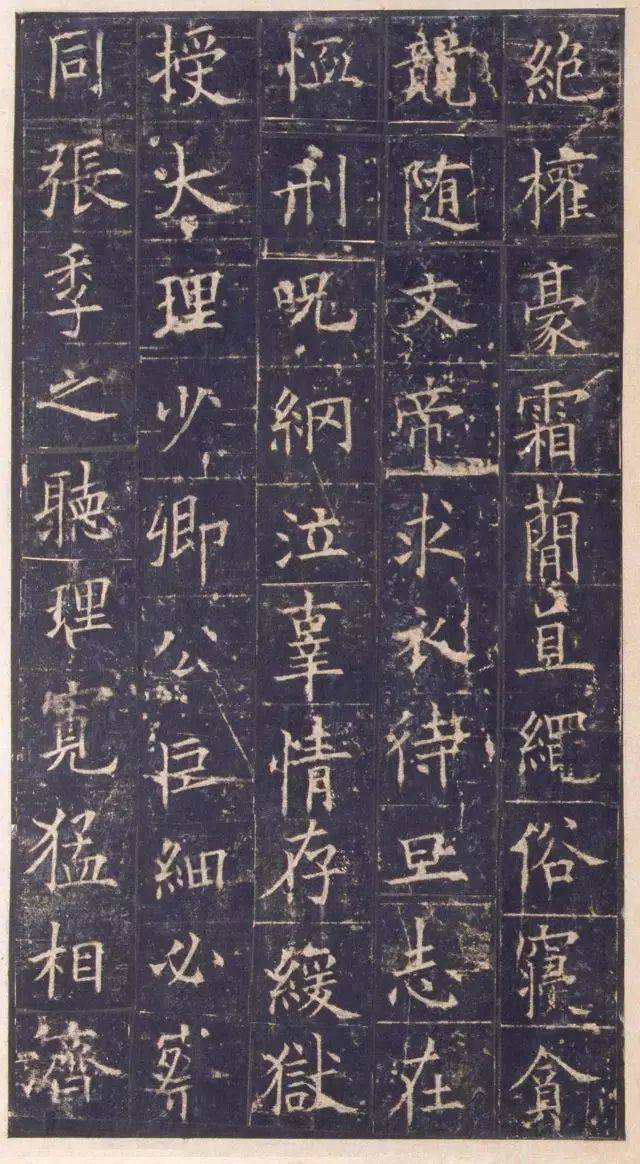 絶權豪霜蕳直繩俗寝貪
競随文帝求衣待旦志在
恤刑呪網泣辜情存緩獄
授大理少卿公巨細必察
同張季之聽理寛猛相濟